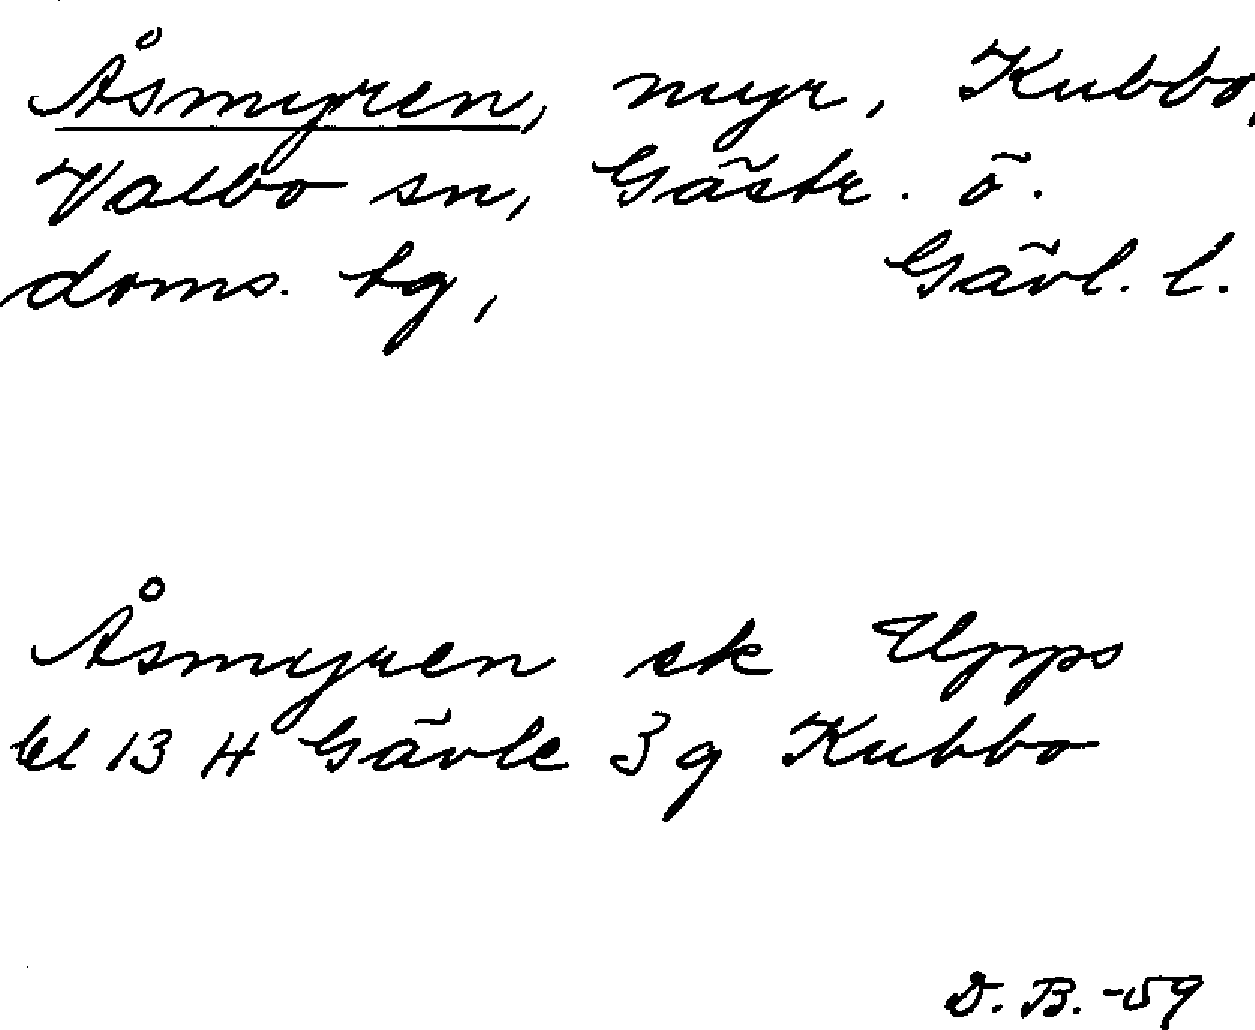 Åsmyren, myr, Kubbo,
Valbo sn, Gästr. ö.
doms. tg, Gävl. l.
Åsmyren ek Upps
bl 13 H Gävle 3 g Kubbo
D. B. -59